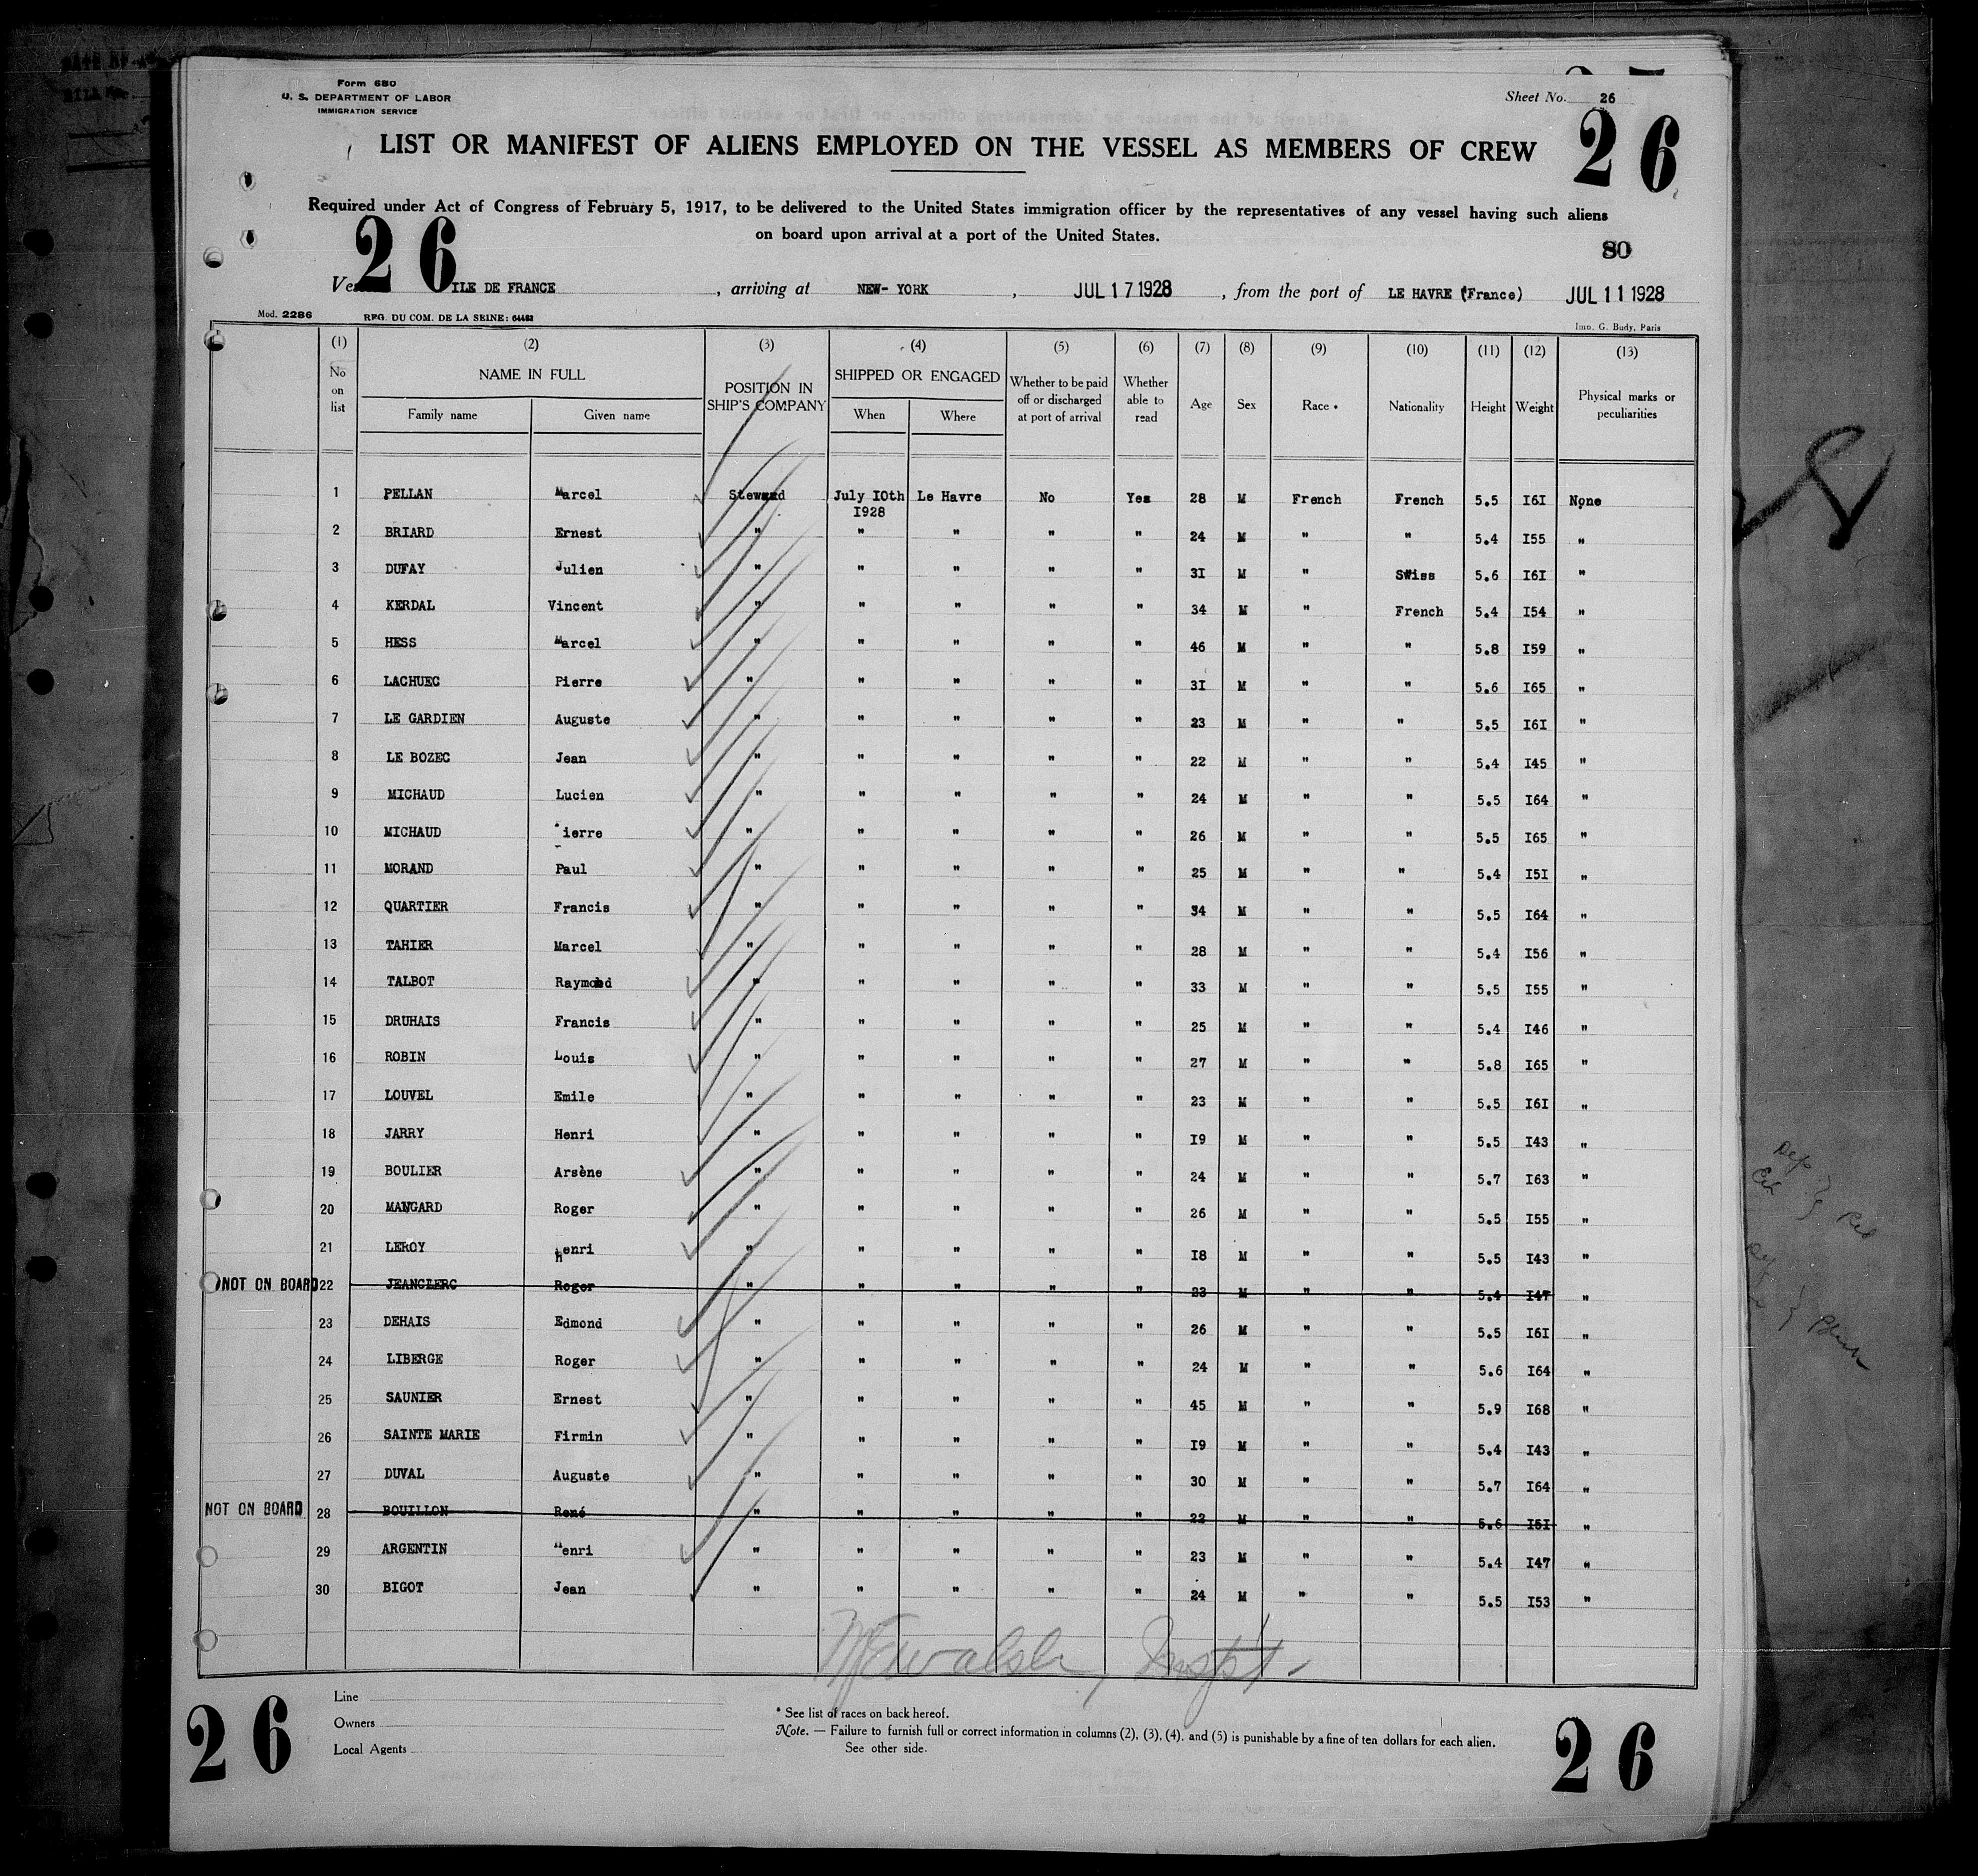 Form 680
U. S. DEPARTMENT OF LABOR
IMMIGRATION SERVICE
Sheet No. 26
LIST OR MANIFEST OF ALIENS EMPLOYED ON THE VESSEL AS MEMBERS OF CREW
26
Required under Act of Congress of February 5, 1917, to be delivered to the United States immigration officer by the representatives of any vessel having such aliens
on board upon arrival at a port of the United States.
26
80
ILE DE FRANCE , arriving at NEW- YORK , JUL 17 1928 , from the port of LE HAVRE (France) JUL 11 1928
Mod. 2286 REG. DU COM. DE LA SEINE: 64482 Imp. G. Budy, Paris
(1) (2) (3) (4) (5) (6) (7) (8) (9) (10) (11) (12) (13)
No on list NAME IN FULL Family name Given name POSITION IN SHIP'S COMPANY SHIPPED OR ENGAGED When Where Whether to be paid off or discharged at port of arrival Whether able to read Age Sex Race * Nationality Height Weight Physical marks or peculiarities
1 PELLAN Marcel Steward July 10th 1928 Le Havre No Yes 28 M French French 5.5 I6I None
2 BRIARD Ernest " " " " " 24 M " " 5.4 I55 "
3 DUFAY Julien " " " " " 3I M " Swiss 5.6 I6I "
4 KERDAL Vincent " " " " " 34 M " French 5.4 I54 "
5 HESS Marcel " " " " " 46 M " " 5.8 I59 "
6 LACHUEC Pierre " " " " " 3I M " " 5.6 I65 "
7 LE GARDIEN Auguste " " " " " 23 M " " 5.5 I6I "
8 LE BOZEC Jean " " " " " 22 M " " 5.4 I45 "
9 MICHAUD Lucien " " " " " 24 M " " 5.5 I64 "
10 MICHAUD Pierre " " " " " 26 M " " 5.5 I65 "
11 MORAND Paul " " " " " 25 M " " 5.4 I5I "
12 QUARTIER Francis " " " " " 34 M " " 5.5 I64 "
13 TAHIER Marcel " " " " " 28 M " " 5.4 I56 "
14 TALBOT Raymond " " " " " 33 M " " 5.5 I55 "
15 DRUHAIS Francis " " " " " 25 M " " 5.4 I46 "
16 ROBIN Louis " " " " " 27 M " " 5.8 I65 "
17 LOUVEL Emile " " " " " 23 M " " 5.5 I6I "
18 JARRY Henri " " " " " I9 M " " 5.5 I43 "
19 BOULIER Arsène " " " " " 24 M " " 5.7 I63 "
20 MANGARD Roger " " " " " 26 M " " 5.5 I55 "
21 LEROY Henri " " " " " I8 M " " 5.5 I43 "
NOT ON BOARD 22 JEANCLERC Roger " " " " " 23 M " " 5.4 I47 "
23 DEHAIS Edmond " " " " " 26 M " " 5.5 I6I "
24 LIBERGE Roger " " " " " 24 M " " 5.6 I64 "
25 SAUNIER Ernest " " " " " 45 M " " 5.9 I68 "
26 SAINTE MARIE Firmin " " " " " I9 M " " 5.4 I43 "
27 DUVAL Auguste " " " " " 30 M " " 5.7 I64 "
NOT ON BOARD 28 BOUILLON René " " " " " 22 M " " 5.6 I5I "
29 ARGENTIN Henri " " " " " 23 M " " 5.4 I47 "
30 BIGOT Jean " " " " " 24 M " " 5.5 I53 "
Walsh, Inspt.
26
Line
Owners
Local Agents
* See list of races on back hereof.
Note. — Failure to furnish full or correct information in columns (2), (3), (4), and (5) is punishable by a fine of ten dollars for each alien.
See other side.
26